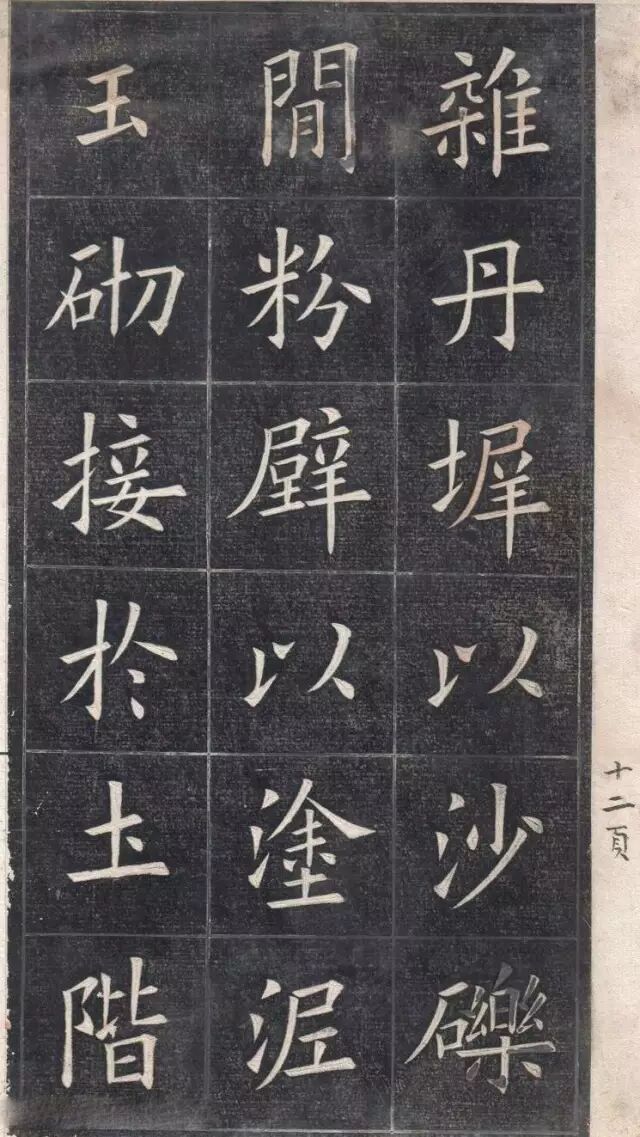 十二頁
雜丹墀以沙礫
閒粉壁以塗泥
玉砌接於土階